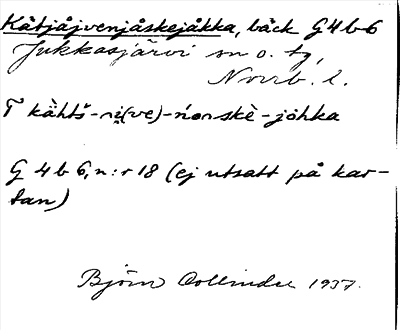 Kåtjåjvenjåskejåkka, bäck G4b6
Jukkasjärvi sn o. tg,
Norrb. l.
G 4 b 6, n:r 18 (ej utsatt på kar-
tan)
Björn Collinder 1937.